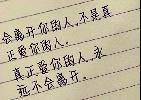 会离开你的人,不是真
正爱你的人.
真正爱你的人,永
远不会离开。